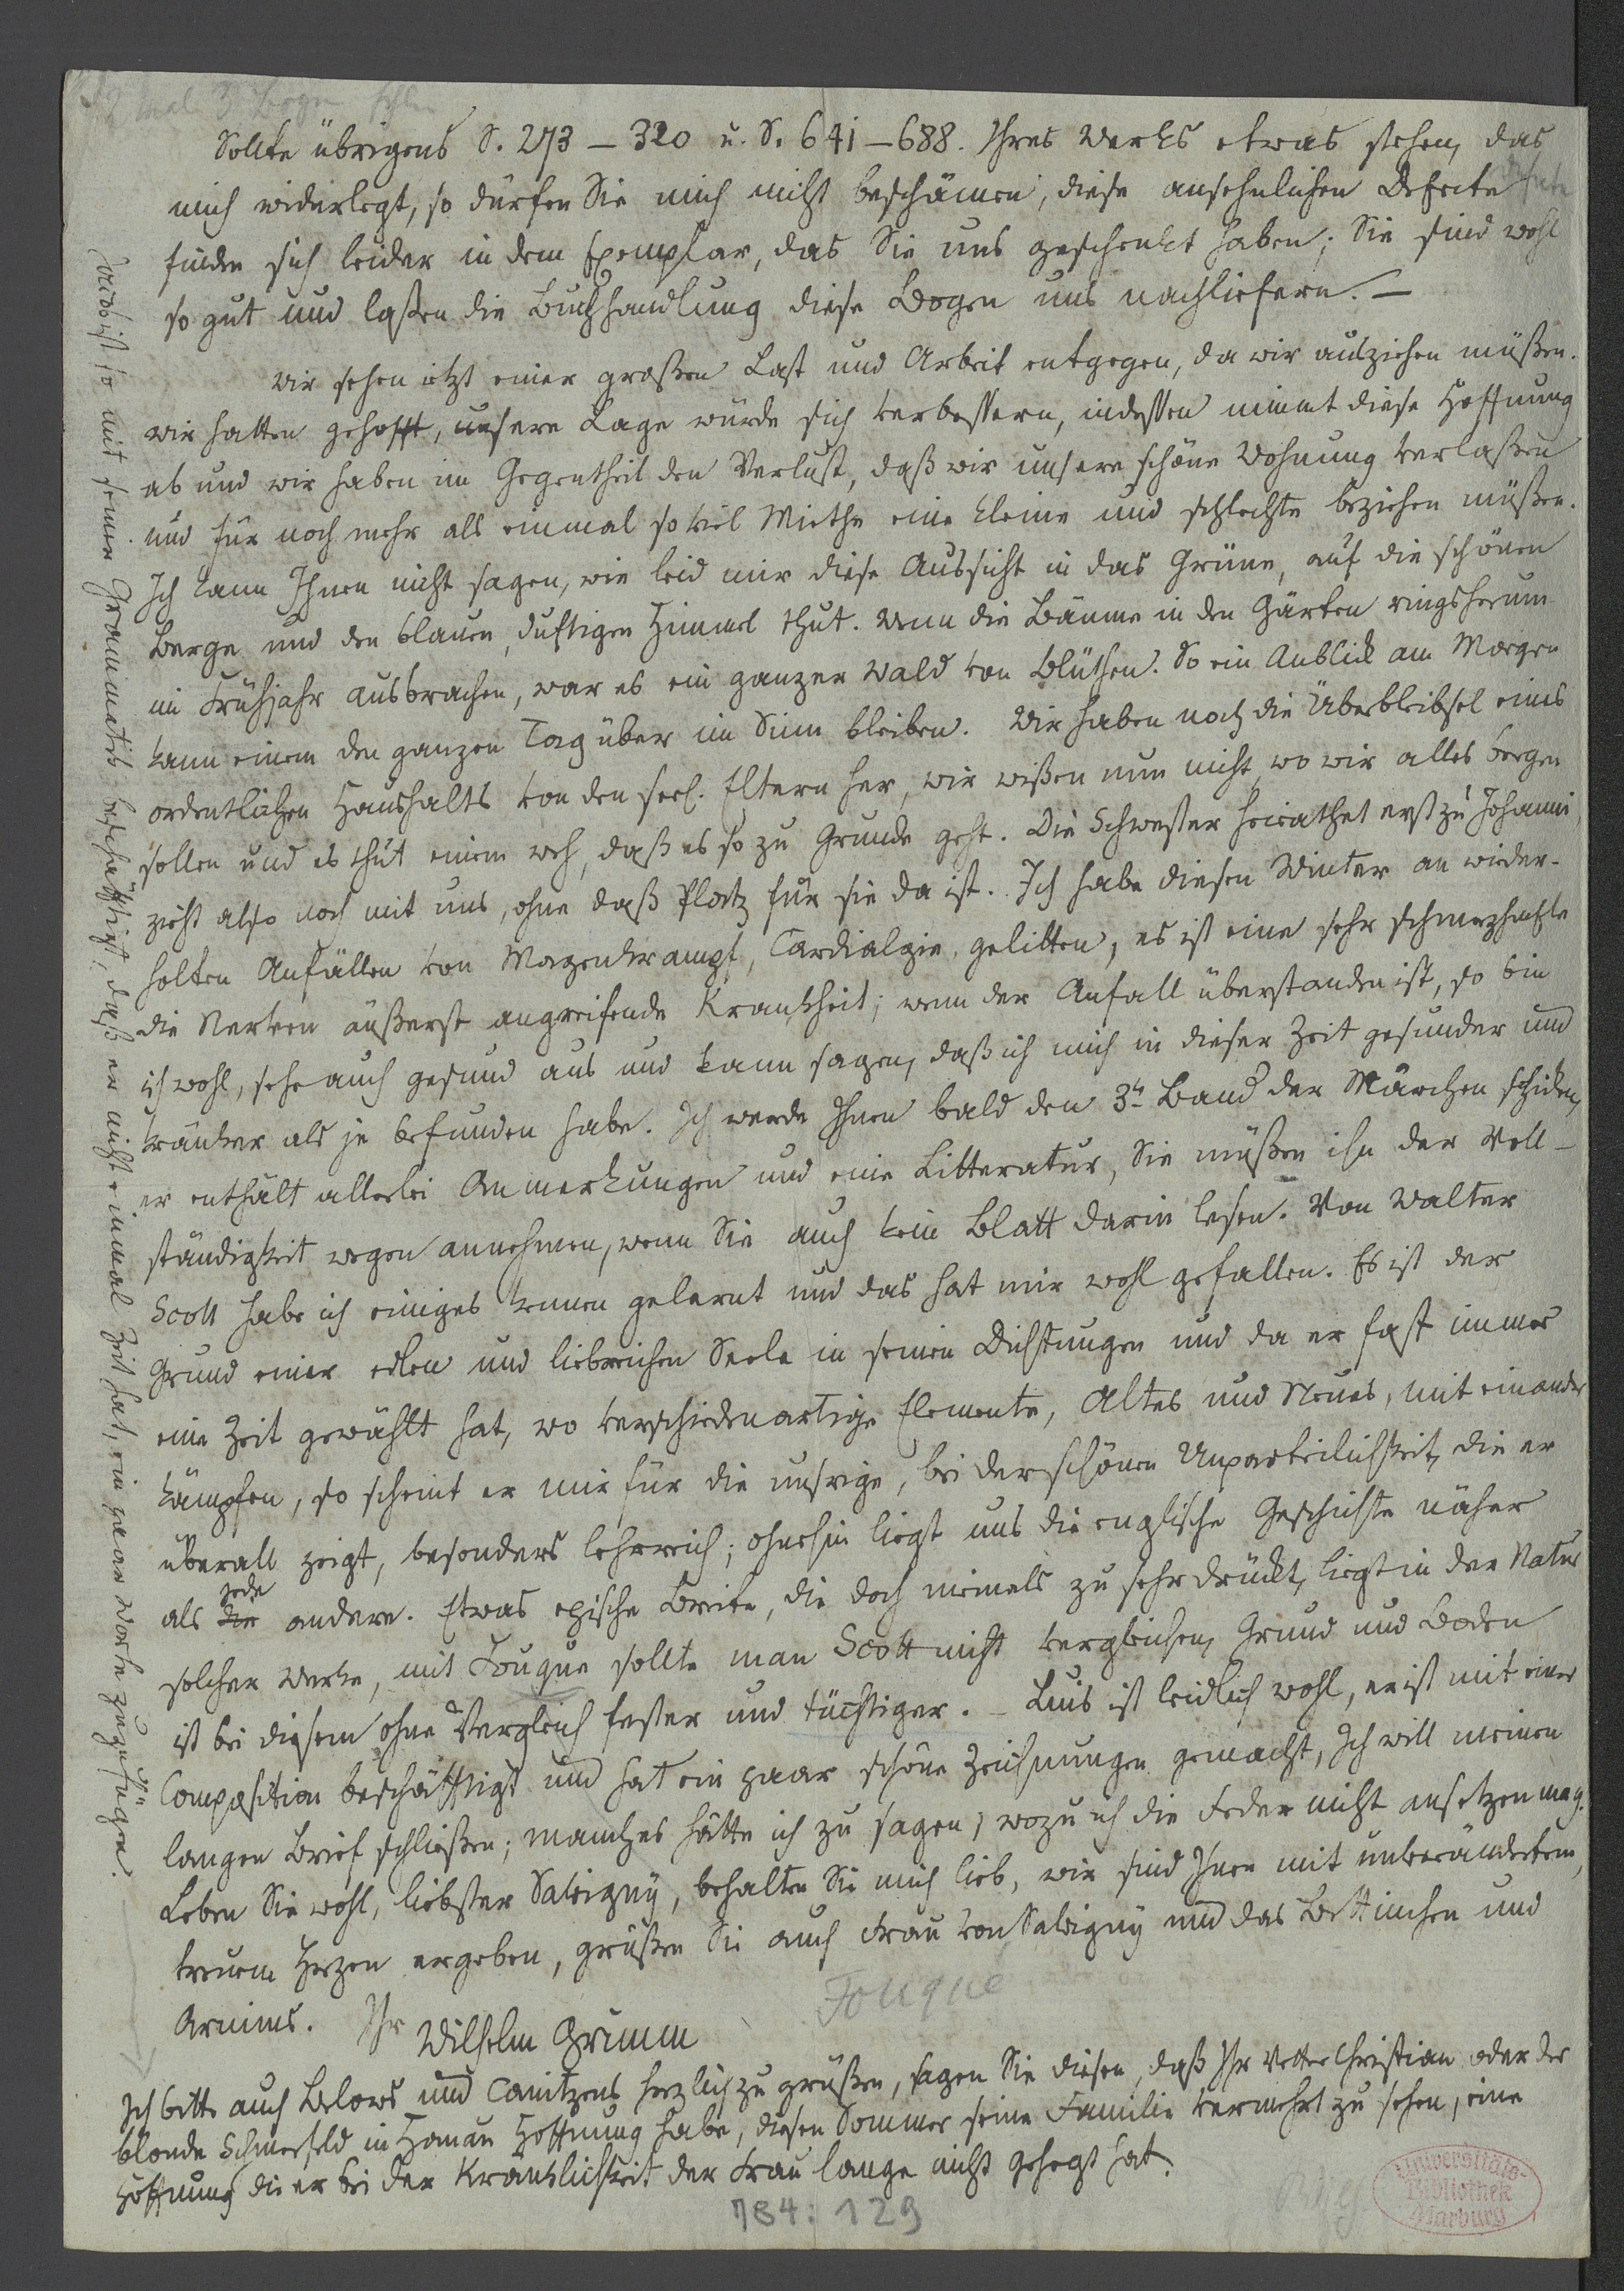 2 mal 3 Bogen fehlen
Sollte übrigens S. 273 – 320 u. S. 641 – 688. Ihres Werks etwas stehen, das
mich widerlegt, so dürfen Sie mich nicht beschämen, diese ansehnlichen Defecte
finden sich leider in dem Exemplar, das Sie uns geschenkt haben; Sie sind wohl
so gut und laßen die Buchhandlung diese Bogen uns nachliefern. –
Wir sehen ietzt einer großen Last und Arbeit entgegen, da wir ausziehen müßen.
wir hatten gehofft, unsere Lage würde sich verbessern, indessen nimmt diese Hoffnung
ab und wir haben im Gegentheil den Verlust, daß wir unsere schöne Wohnung verlaßen
und für noch mehr als einmal so viel Miethe eine kleine und schlechte beziehen müßen.
Ich kann Ihnen nicht sagen, wie leid mir diese Aussicht in das Grüne, auf die schönen
Berge und den blauen, duftigen Himmel thut. Wenn die Bäume in den Gärten ringsherum
im Frühjahr ausbrachen, war es ein ganzer Wald von Blüthen. So ein Anblick am Morgen
kann einem den ganzen Tag über im Sinn bleiben. Wir haben noch die Überbleibsel eines
ordentlichen Haushalts von den seel. Eltern her, wir wißen nun nicht, wo wir alles bergen
sollen und es thut einem weh, daß es so zu Grunde geht. Die Schwester heirathet erst zu Johanni,
zieht also noch mit uns, ohne daß Platz für sie da ist. Ich habe diesen Winter an wieder-
holten Anfällen von Magenkrampf, Cardialgie, gelitten, es ist eine sehr schmerzhafte
die Nerven äußerst angreifende Krankheit; wenn der Anfall überstanden ist, so bin
ich wohl, sehe auch gesund aus und kann sagen, daß ich mich in dieser Zeit gesunder und
kränker als je befunden habe. Ich werde Ihnen bald den 3n Band der Märchen schicken,
er enthält allerlei Anmerkungen und eine Litteratur, Sie müßen ihn der Voll-
ständigkeit wegen annehmen, wenn Sie auch kein Blatt darin lesen. Von Walter
Scott habe ich einiges kennen gelernt und das hat mir wohl gefallen. Es ist der
Grund einer edlen und liebreichen Seele in seinen Dichtungen und da er fast immer
eine Zeit gewählt hat, wo verschiedenartige Elemente, Altes und Neues, mit einander
kämpfen, so scheint er mir für die unsrige, bei der schönen Unparteilichkeit, die er
überall zeigt, besonders lehrreich; ohnehin liegt uns die englische Geschichte näher
als jede andere. Etwas epische Breite, die doch niemals zu sehr drückt, liegt in der Natur
solcher Werke, mit Fouque sollte man Scott nicht vergleichen, Grund und Boden
ist bei diesem ohne Vergleich fester und tüchtiger. – Luis ist leidlich wohl, er ist mit einer
Composition beschäfftigt und hat ein paar schöne Zeichnungen gemacht, Ich will meinen
langen Brief schließen; manches hätte ich zu sagen, wozu ich die Feder nicht ansetzen mag.
Leben Sie wohl, liebster Savigny, behalten Sie mich lieb, wir sind Ihnen mit unverändertem,
treuem Herzen ergeben, grüßen Sie auch Frau von Savigny und das Bettinchen und
Arnims. Ihr Wilhelm Grimm
Fouqué
Ich bitte auch Belows und Canitzens herzlich zu grüßen, sagen Sie diesen, daß Ihr Vetter Christian oder der
blonde Schmerfeld in Hanau Hoffnung habe, diesen Sommer seine Familie vermehrt zu sehen, eine
Hoffnung die er bei der Kränklichkeit der Frau lange nicht gehegt hat.
Jacob ist so mit seiner Grammatik beschäfftigt, daß er nicht einmal Zeit hat, ein paar Worte zuzufügen.
784: 129
Universitäts-
Bibliothek
Marburg